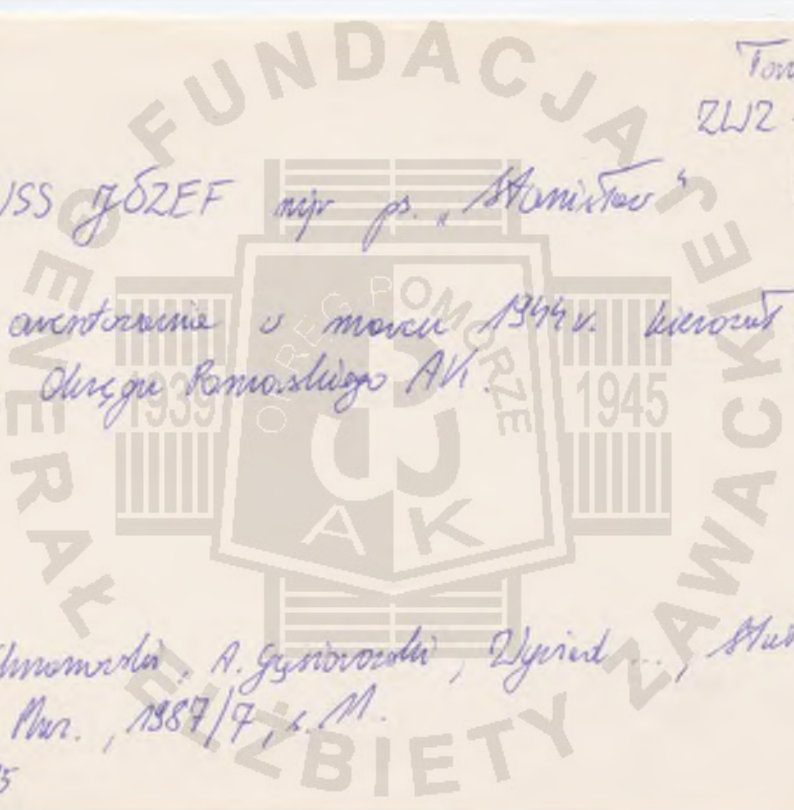 ZWZ
JÓZEF mjr ps. „Stanisław"
aresztowania w marcu 1944 r. kierował
Okręgu Pomorskiego AK.
A. Gąsiorowski, Wywiad ...,
1987/7, s. 11.
FUNDACJA
GENERAŁ ELŻBIETY ZAWACKIEJ
OKRĘG POMORZE
1939
1945
AK